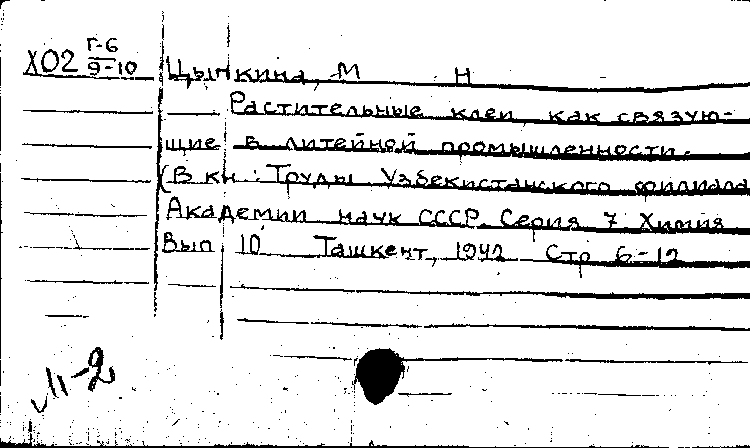 Х02 Г-6
9-10
Цыпкина, М Н
Растительные клеи как связую-
щие в литейной промышленности.
(В кн.: Труды Узбекистанского филиала
Академии наук СССР. Серия 7 Химия
Вып 10 Ташкент, 1942 Стр 6-12